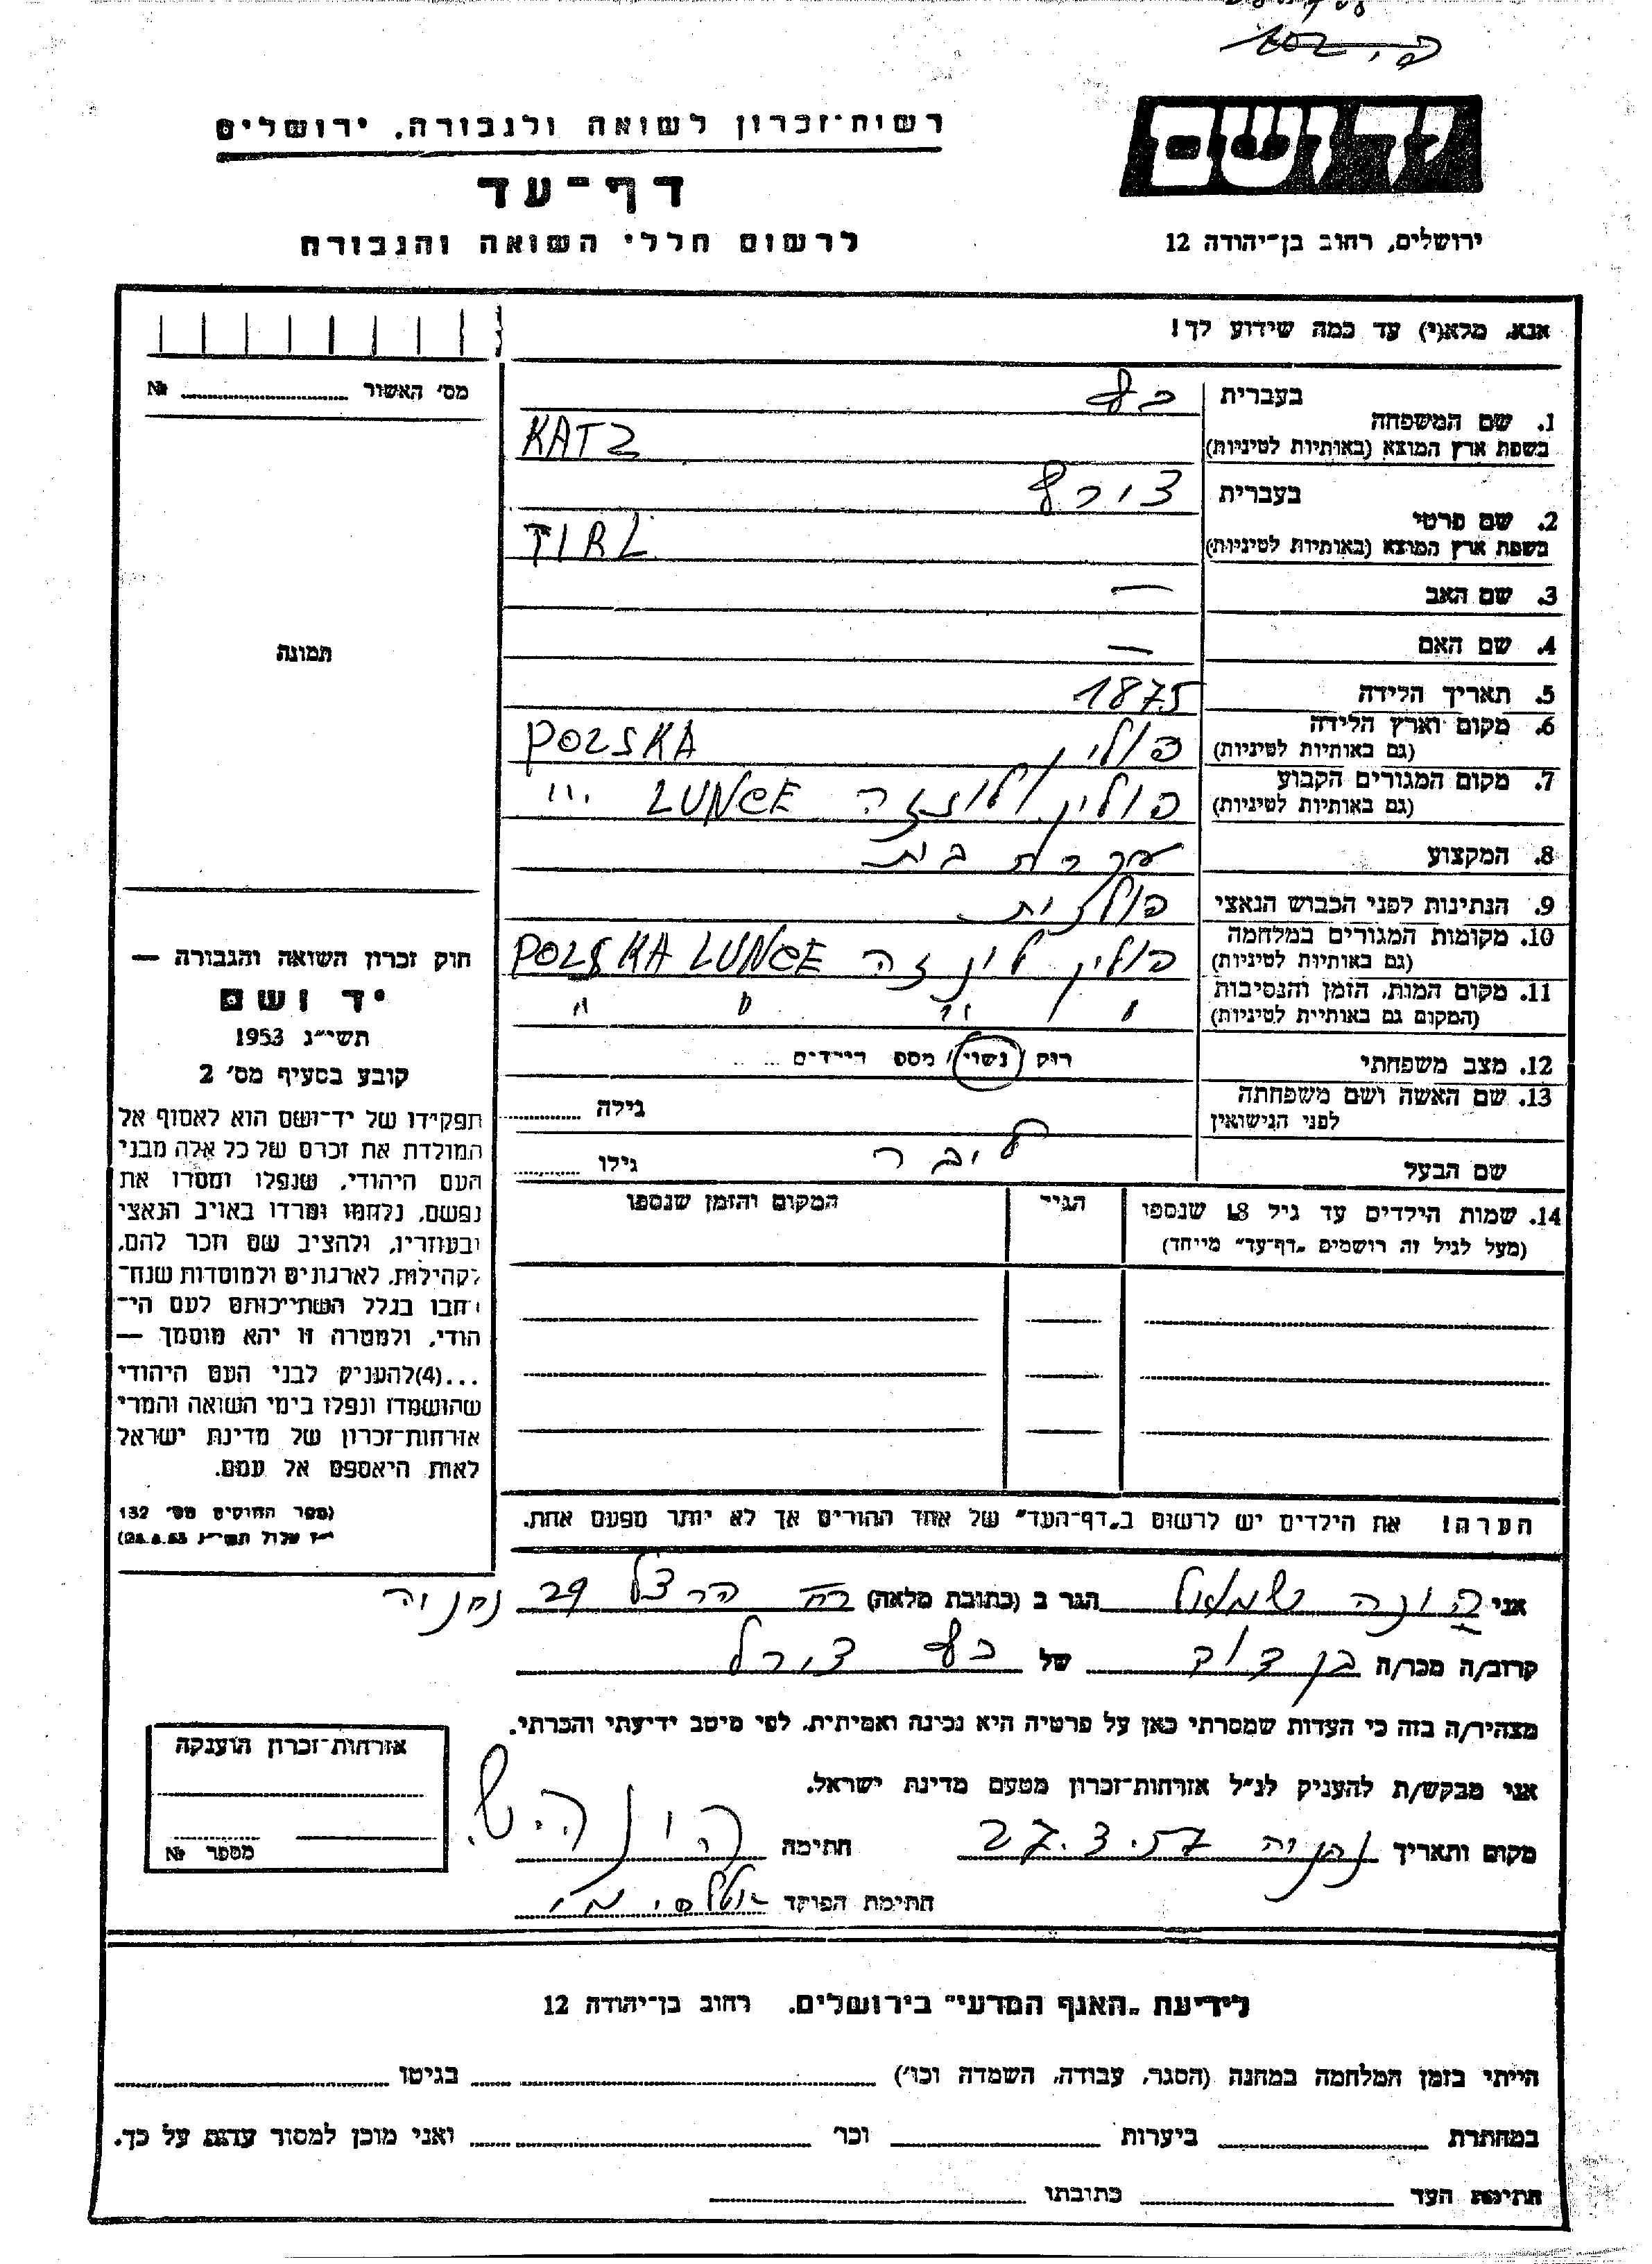 יד ושם
רשות־זכרון לשואה ולגבורה, ירושלים
דף־עד
לרשום חללי השואה והגבורה
ירושלים, רחוב בן־יהודה 12
אנא, מלא(י) עד כמה שידוע לך!
מס׳ האשור № 
תמונה
1. שם המשפחה
בעברית כץ
בשפת ארץ המוצא (באותיות לטיניות) KATZ
2. שם פרטי
בעברית צירל
בשפת ארץ המוצא (באותיות לטיניות) TIRL
3. שם האב —
4. שם האם —
5. תאריך הלידה 1875
6. מקום וארץ הלידה
(גם באותיות לטיניות) פולין POLSKA
7. מקום המגורים הקבוע
(גם באותיות לטיניות) פולין LUNCE "
8. המקצוע עקרת בית
9. הנתינות לפני הכבוש הנאצי פולנית
10. מקומות המגורים במלחמה
(גם באותיות לטיניות) פולין POLSKA LUNCE
11. מקום המות, הזמן והנסיבות
(המקום גם באותיות לטיניות) " " " "
12. מצב משפחתי רוק / נשוי / מספר הילדים
13. שם האשה ושם משפחתה
לפני הנישואין גילה
שם הבעל ליבר גילו
14. שמות הילדים עד גיל 18 שנספו הגיל המקום והזמן שנספו
(מעל לגיל זה רושמים „דף־עד״ מיוחד)
הערה! את הילדים יש לרשום ב„דף־העד״ של אחד ההורים אך לא יותר מפעם אחת.
חוק זכרון השואה והגבורה —
יד ושם
תשי״ג 1953
קובע בסעיף מס׳ 2
תפקידו של יד־ושם הוא לאסוף אל
המולדת את זכרם של כל אלה מבני
העם היהודי, שנפלו ומסרו את
נפשם, נלחמו ומרדו באויב הנאצי
ובעוזריו, ולהציב שם וזכר להם,
לקהילות, לארגונים ולמוסדות שנח־
רבו בגלל השתייכותם לעם הי־
הודי, ולמטרה זו יהא מוסמך —
...(4) להעניק לבני העם היהודי
שהושמדו ונפלו בימי השואה והמרי
אזרחות־זכרון של מדינת ישראל
לאות היאספם אל עמם.
(ספר החוקים מס׳ 132
י״ז אלול תשי״ג 28.8.53)
אני שמאול הגר ב (כתובת מלאה) רח הרצל 29 נתניה
קרוב/ה מכר/ה בן דוד של כץ צירל
מצהיר/ה בזה כי העדות שמסרתי כאן על פרטיה היא נכונה ואמיתית, לפי מיטב ידיעתי והכרתי.
אני מבקש/ת להעניק לנ״ל אזרחות־זכרון מטעם מדינת ישראל.
מקום ותאריך נתניה 27.3.57 חתימה
חתימת הפוקד
אזרחות־זכרון הוענקה
מספר №
לידיעת „האגף המדעי״ בירושלים, רחוב בן־יהודה 12
הייתי בזמן המלחמה במחנה (הסגר, עבודה, השמדה וכו׳) בגיטו
במחתרת ביערות וכו׳ ואני מוכן למסור עדות על כך.
חתימת העד כתובתו